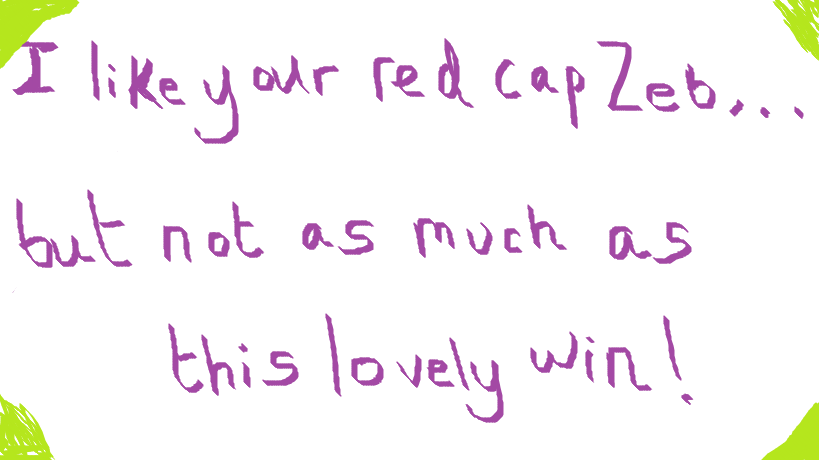 I like your red cap Zeb...
but not as much as
this lovely win!